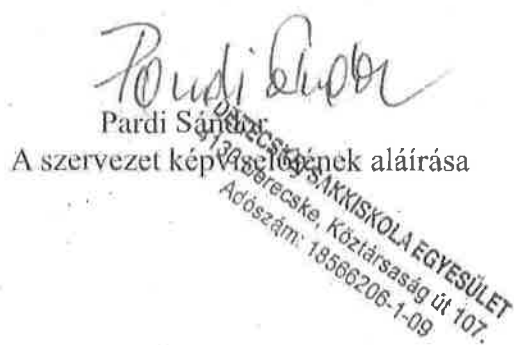 Pardi Sándor
Pardi Sándor
A szervezet képviselőjének aláírása
DERECSKEI SAKKISKOLA EGYESÜLET
4130 Derecske, Köztársaság út 107.
Adószám: 18566206-1-09